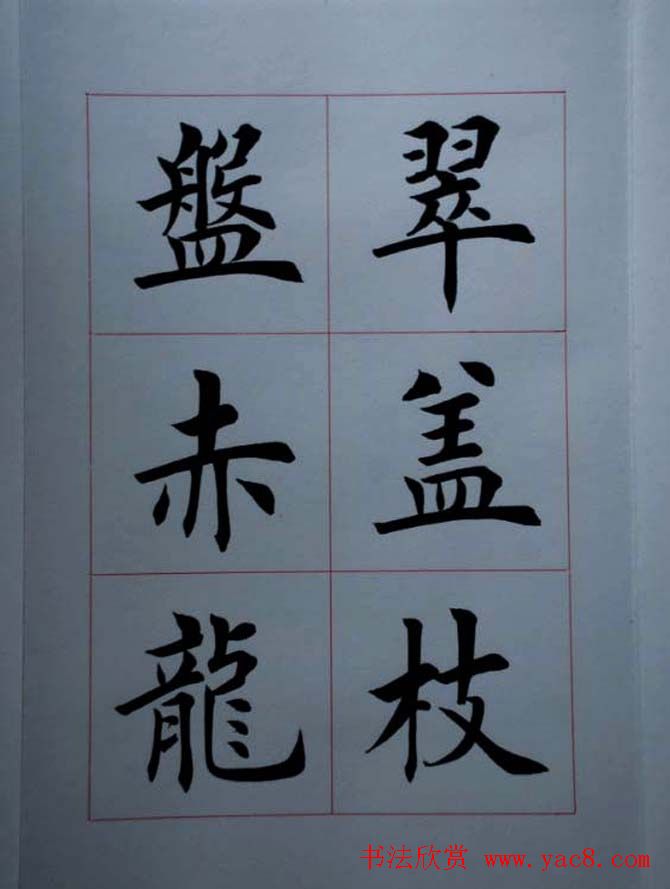 翠盖枝
盤赤龍
书法欣赏 www.yac8.com